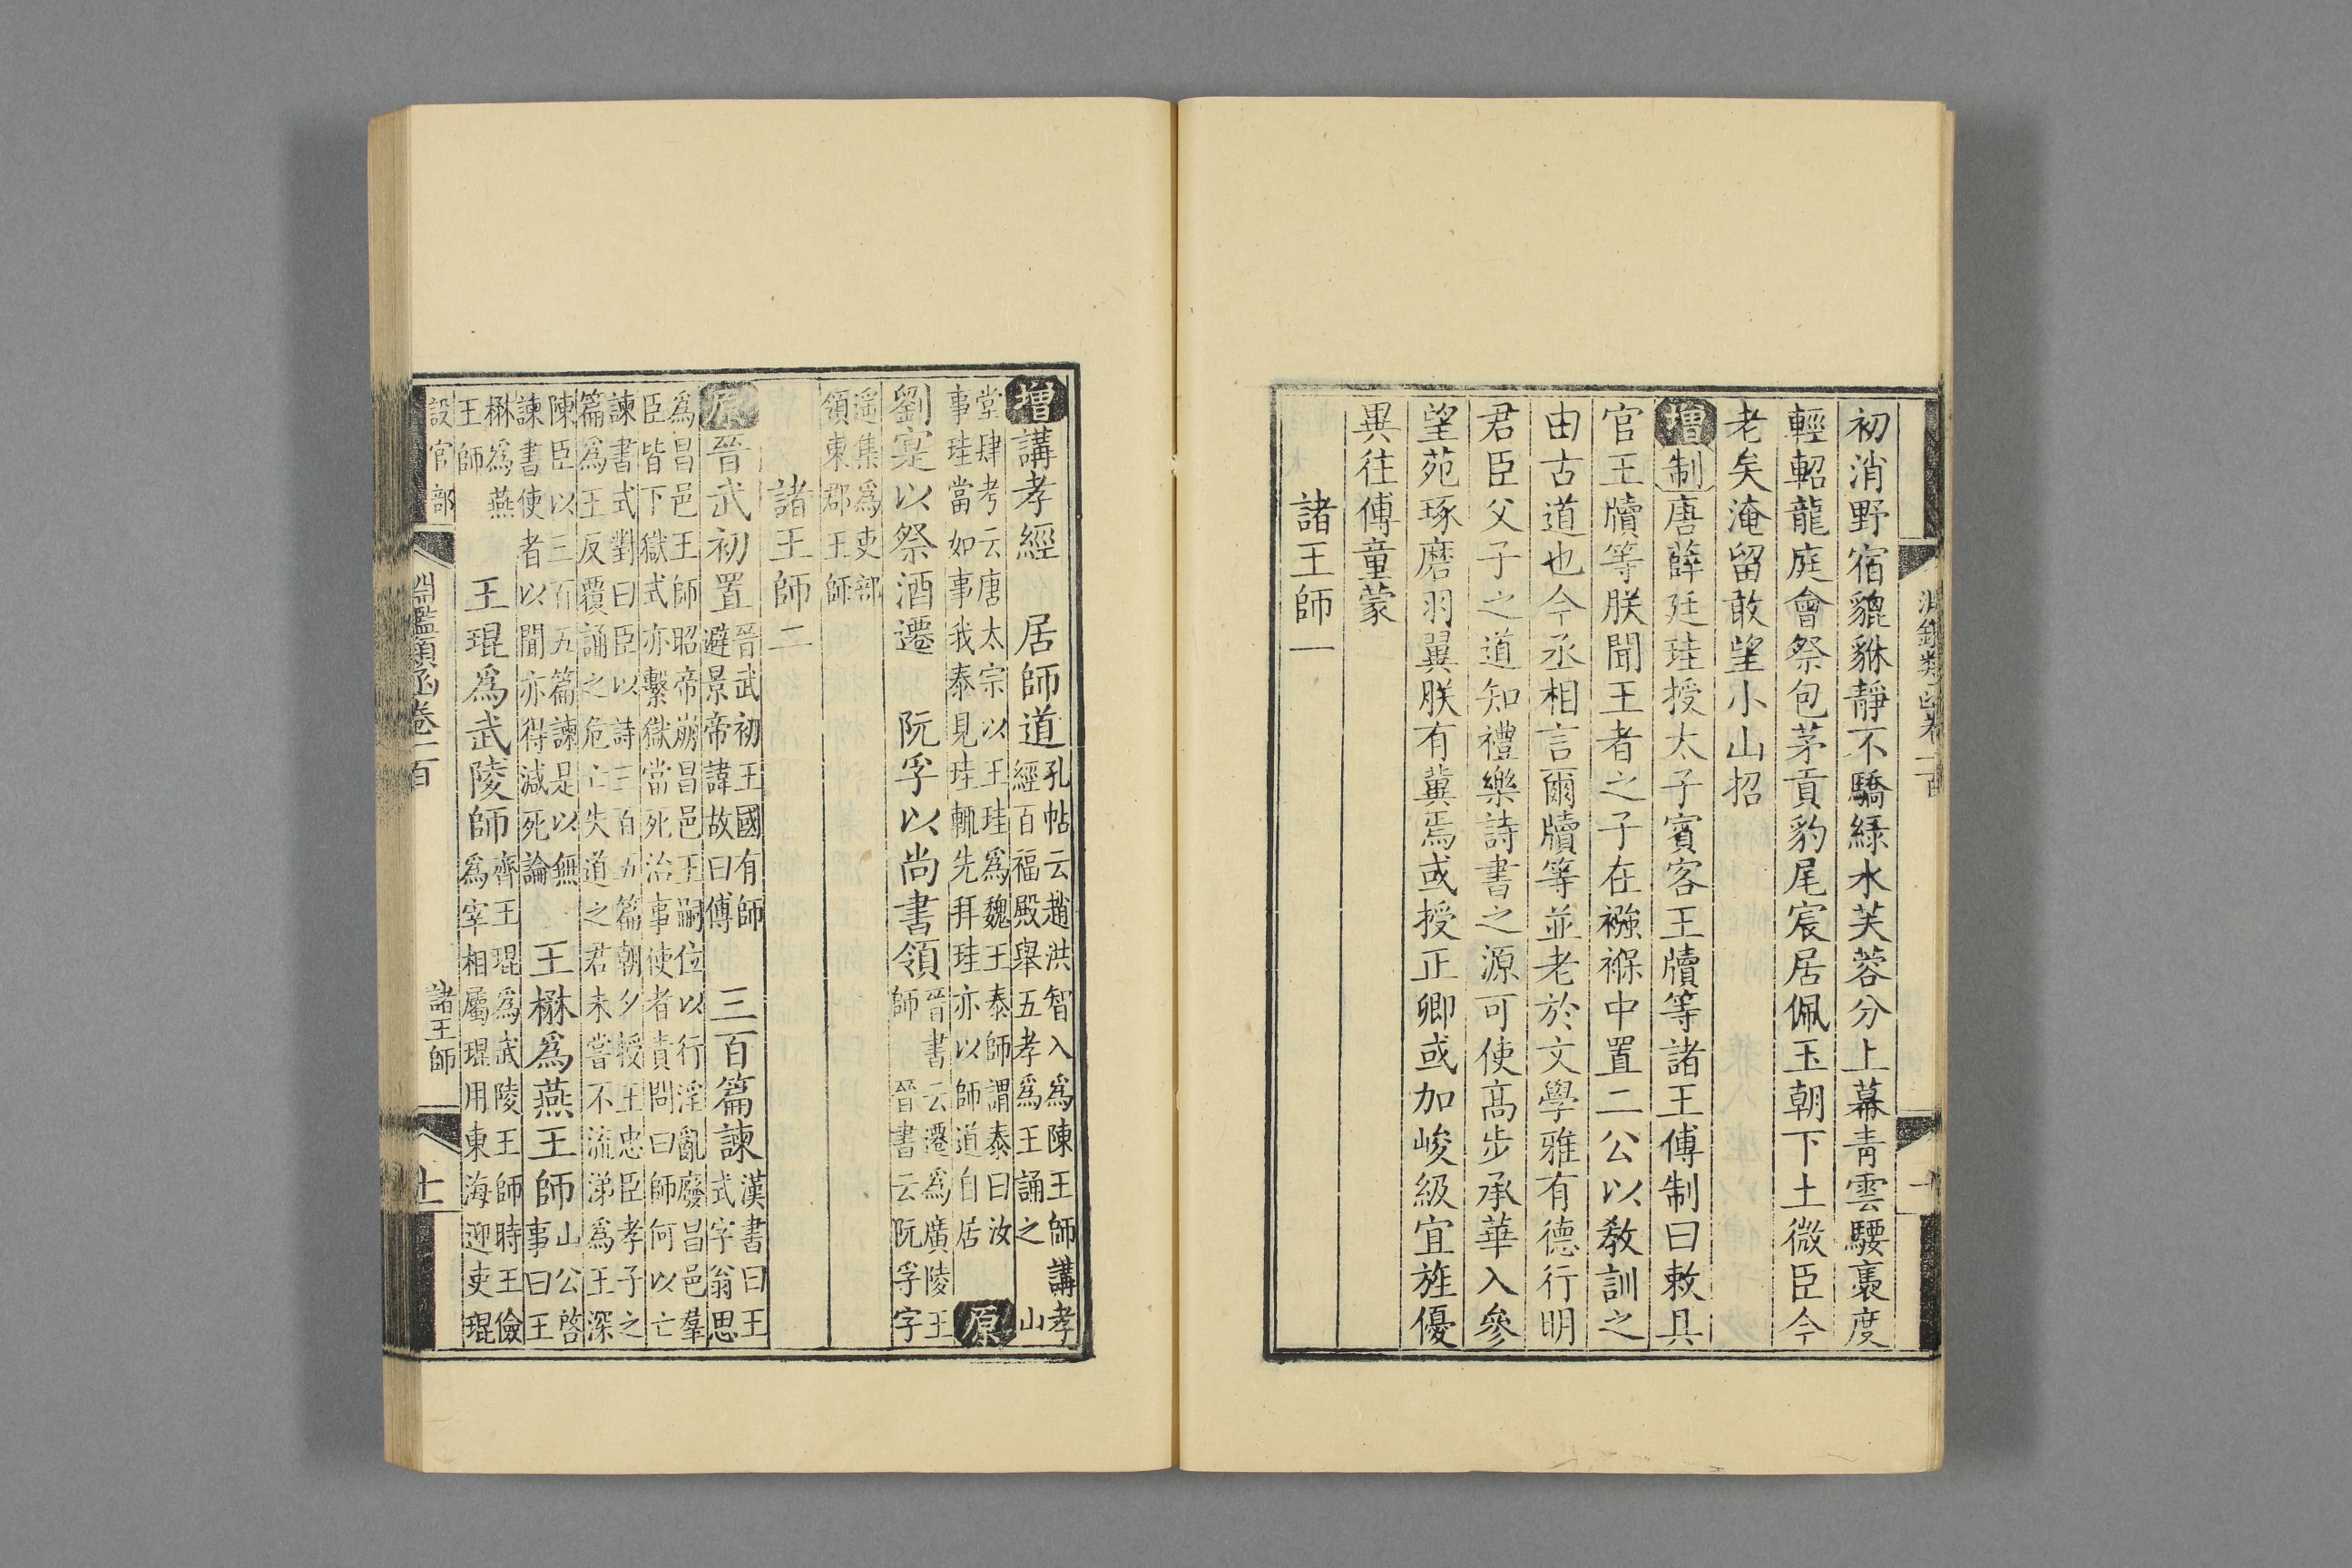 初消野宿貔貅靜不驕綠水芙蓉分上幕青雲騕褭度
輕軺龍庭會祭包茅貢豹尾宸居佩玉朝下土微臣今
老矣淹留敢望小山招
增制唐薛廷珪授太子賓客王牘等諸王傅制曰敕具
官王牘等朕聞王者之子在襁褓中置二公以敎訓之
由古道也今丞相言爾牘等並老於文學雅有德行明
君臣父子之道知禮樂詩書之源可使高步承華入參
望苑琢磨羽翼朕有冀焉或授正卿或加峻級宜旌優
異往傅童蒙
諸王師一
增講孝經 居師道孔帖云趙洪智入為陳王師講孝
經百福殿舉五孝為王誦之 山
堂肆考云唐太宗以王珪為魏王泰師謂泰曰汝
事珪當如事我泰見珪輒先拜珪亦以師道自居
原
劉寔以祭酒遷 阮孚以尚書領晉書云遷為廣陵王
師 晉書云阮孚字
遥集為吏部
領東郡王師
諸王師二
原晉武初置晉武初王國有師
避景帝諱故曰傅
三百篇諫漢書曰王
式字翁思
為昌邑王師昭帝崩昌邑王嗣位以行淫亂廢昌邑羣
臣皆下獄式亦繫獄當死治事使者責問曰師何以亡
諫書式對曰臣以詩三百五篇朝夕授王忠臣孝子之
篇為王反覆誦之危亡失道之君未嘗不流涕為王深
陳臣以三百五篇諫是以無
諫書使者以聞亦得減死論
王楙為燕王師山公啓
事曰王
楙為燕
王師
王琨為武陵師齊王琨為武陵王師時王儉
為宰相屬琨用東海迎吏琨
設官部
淵鑑類函卷一百
諸王師